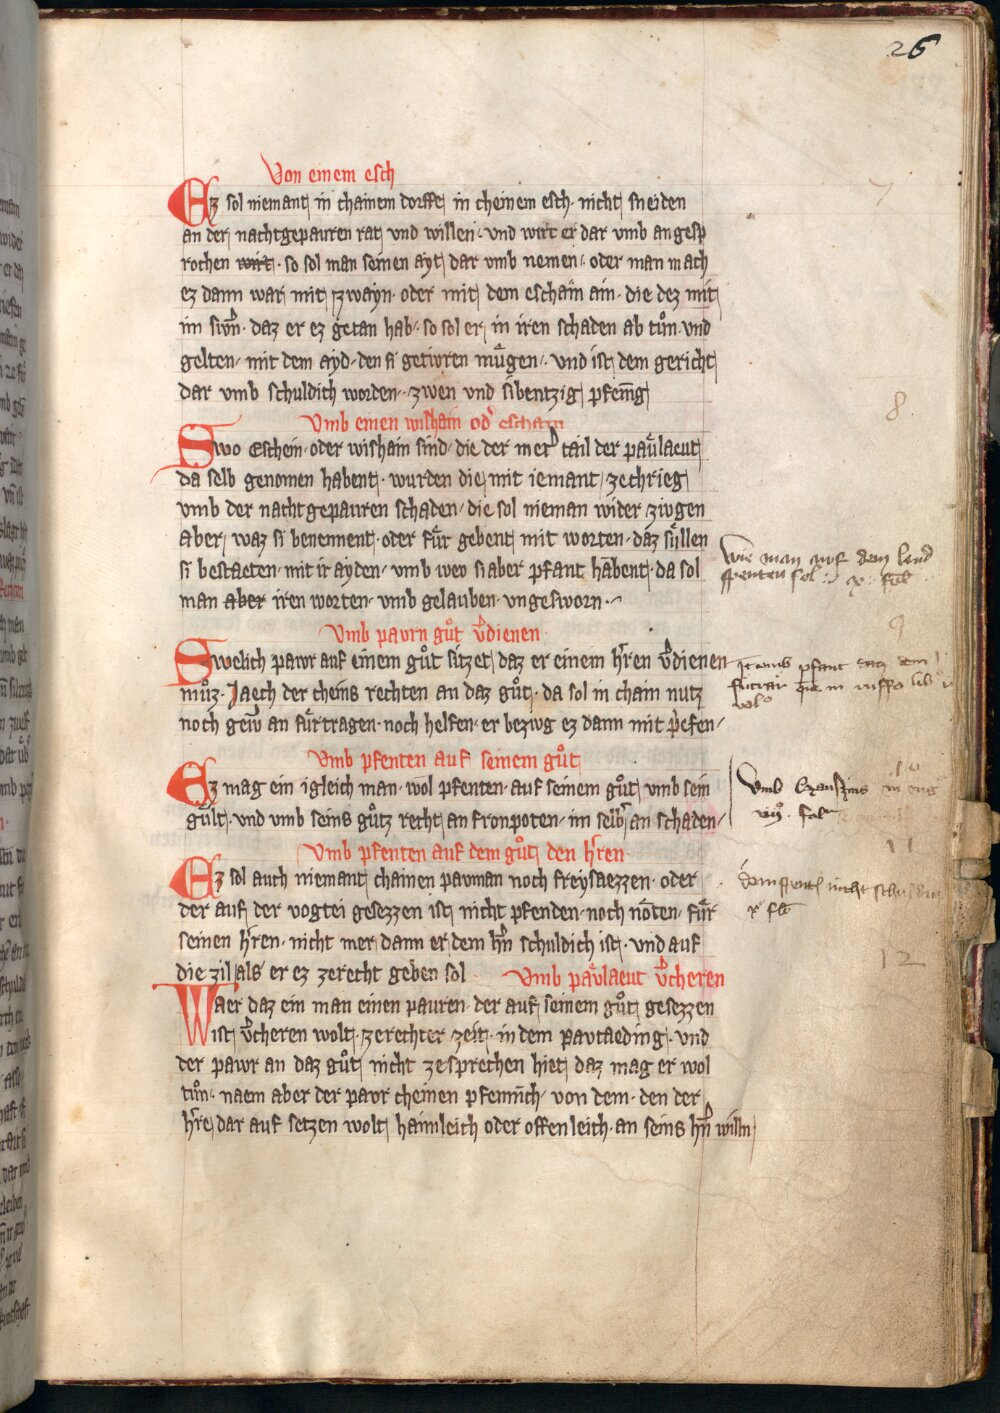 26
Von einem esch
Ez sol niemant in chainem dorffe in cheinem esch· nicht sneiden
an der nachtgepauren rat vnd willen· vnd wirt er dar vmb angesp
rochen wirt· so sol man seinen ayt dar vmb nemen· oder man mach
ez dann war mit zwayn· oder mit dem eschain ain· die dez mit
im swͦn· daz er ez getan hab· so sol er in iren schaden ab tuͦn vnd
gelten· mit dem ayd· den si getiwren muͤgen· vnd ist dem gericht
dar vmb schuldich worden· zwen vnd sibentzig pfenīg
Vmb einen wishain od' eschain
Swo Eschein· oder wishain sind· die der mer tail der paᵛlaeut
da selb genomen habent· wurden die mit iemant zechrieg
vmb der nachtgepauren schaden· die sol nieman wider ziugen
aber waz si benennent· oder fuͤr gebent mit worten· daz suͤllen
si bestaeten· mit ir ayden· vmb wev si aber pfant habent· da sol
man aber iren worten· vmb gelauben vngesworn·
Wie man auf dem land
pfenten sol x fol
8
Vmb pavrn guͦt v'dienen
Swelich pawr auf einem guͦt sitzet daz er einem h'ren v'dienen
muͦz· Jaech der cheins rechten an daz guͦt· da sol in chain nutz
noch gew' an fuͤrtragen· noch helfen· er bezivg ez dann mit p'efen
9
Vmb pfenten auf seinem guͦt
Ez mag ein igleich man· wol pfenten· auf seinem guͦt vmb sein
guͤlt· vnd vmb seins guͦtz recht an fronpoten· im selb' an schaden
10
Vmb pfenten auf dem guͦt den h'ren
Ez sol auch niemant chainen pavman noch freysaezzen· oder
der auf der vogtei gesezzen ist nicht pfenden· noch nōten· fuͤr
seinen h'ren· nicht mer dann er dem h'n schuldich ist· vnd auf
die zil als er ez zerecht geben sol
11
Vmb paᵛlaeut v'cheren
Waer daz ein man einen pauren· der auf seinem guͦt gesezzen
ist v'cheren wolt· zerechter zeit· in dem pavtaeding· vnd
der pawr an daz guͦt nicht zesprechen hiet daz mag er wol
tuͦn· naem aber der pavr cheinen pfennīch· von dem· den der
h're dar auf setzen wolt haimleich oder offenleich· an seins h'n willn
12